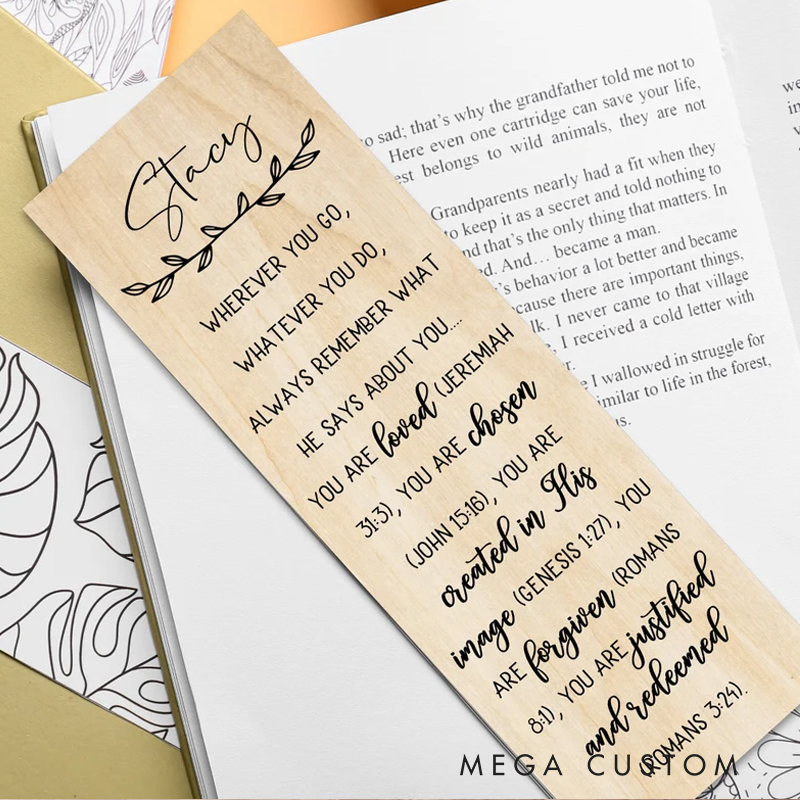 Stacy
WHEREVER YOU GO,
WHATEVER YOU DO,
ALWAYS REMEMBER WHAT
HE SAYS ABOUT YOU....
YOU ARE loved (JEREMIAH
31:3), YOU ARE chosen
(JOHN 15:16), YOU ARE
created in His
image (GENESIS 1:27), YOU
ARE forgiven (ROMANS
8:1), YOU ARE justified
and redeemed
(ROMANS 3:24).
so sad; that's why the grandfather told me not to
Here even one cartridge can save your life,
est belongs to wild animals, they are not
Grandparents nearly had a fit when they
to keep it as a secret and told nothing to
nd that's the only thing that matters. In
ed. And… became a man.
's behavior a lot better and became
cause there are important things,
lk. I never came to that village
I received a cold letter with
r.
e I wallowed in struggle for
imilar to life in the forest,
us.
we
in
MEGA CUSTOM